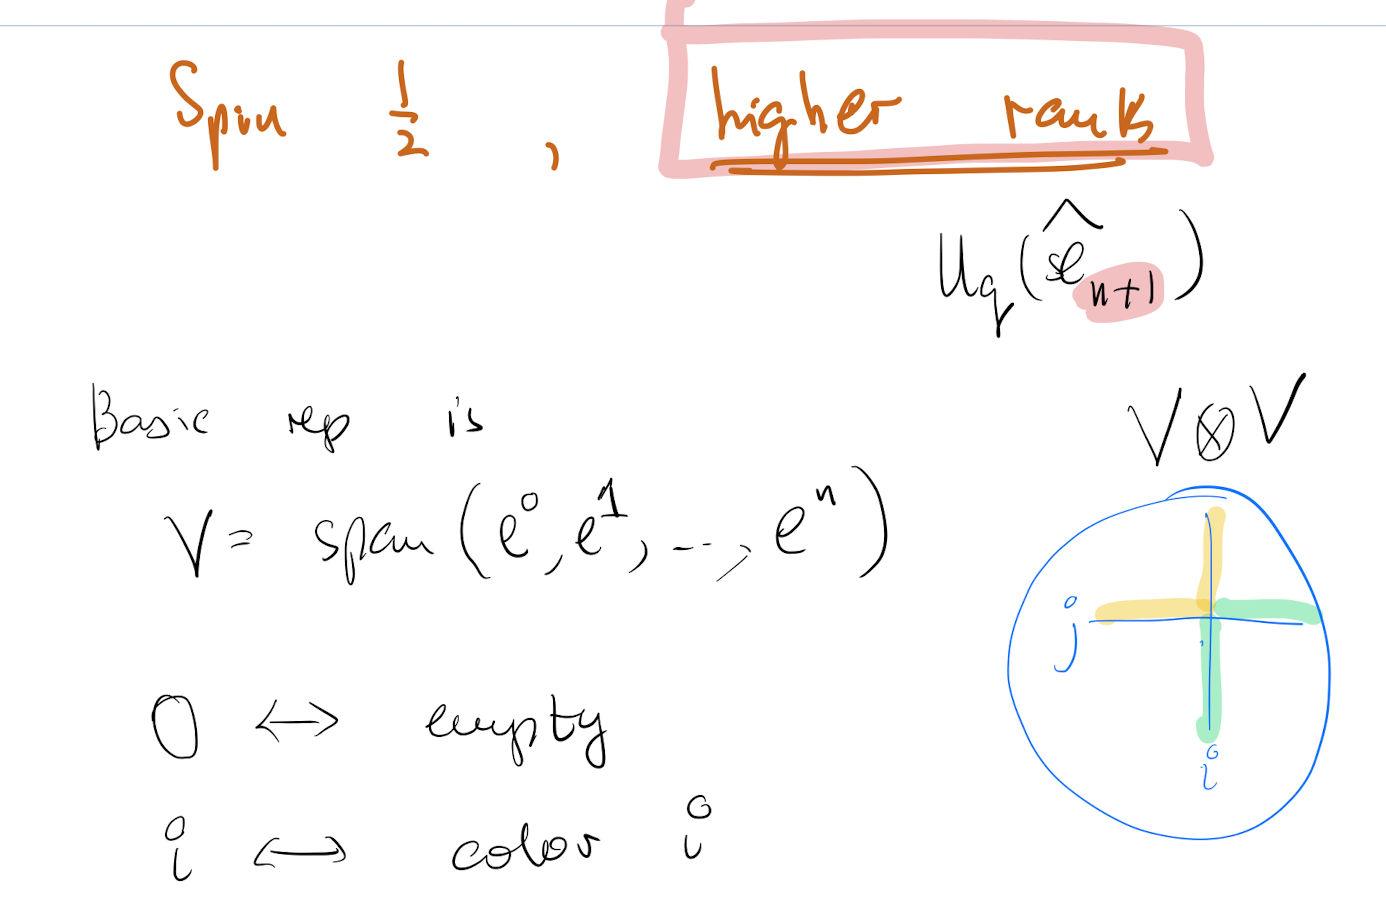 Spin 1/2 , higher rank
U_q(ŝl_{n+1})
Basic rep is
V ⊗ V
V = span(e^0, e^1, ..., e^n)
j
0 ↔ empty
i
i ↔ color i